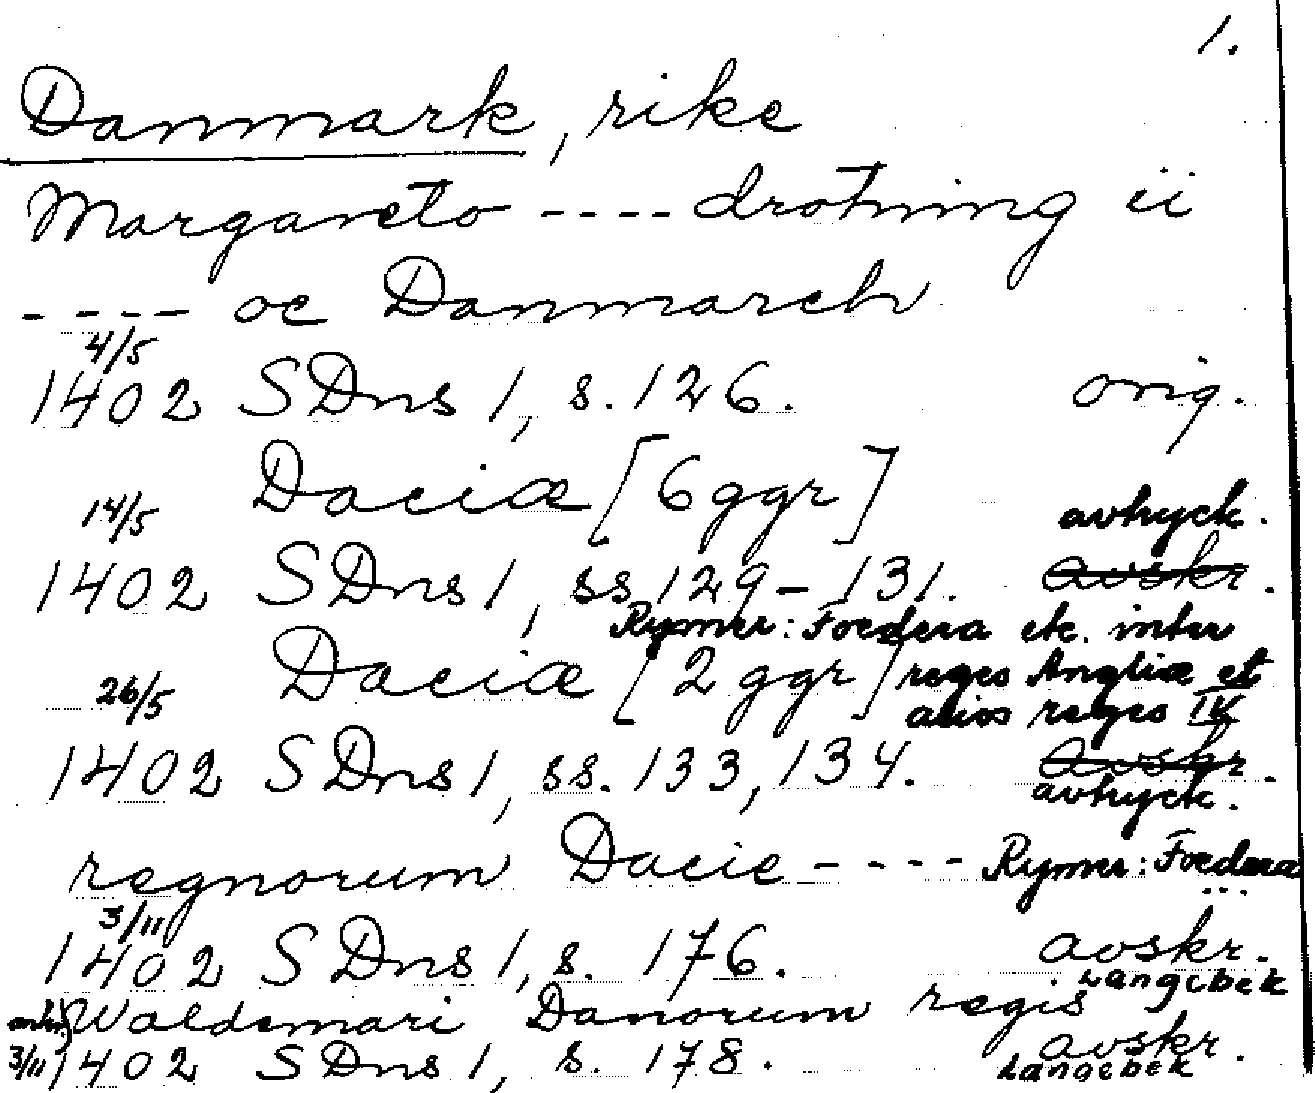 1.
Danmark, rike
Margareto ---- drotning ii
---- oc Danmarch
4/5
1402 SDns 1, s. 126. orig.
Daciæ [6 ggr]
14/5 avtryck.
1402 SDns 1, ss 129-131. avskr.
Rymer: Foedera etc. inter
Daciæ [2 ggr] reges Angliæ et
26/5 alios reges IV
1402 SDns 1, ss. 133, 134. avskr.
avtryck.
regnorum Dacie ---- Rymer: Foedera
3/11 ...
1402 SDns 1, s. 176. avskr.
Langebek
Waldemari Danorum regis
3/11 1402 SDns 1, s. 178. avskr.
Langebek